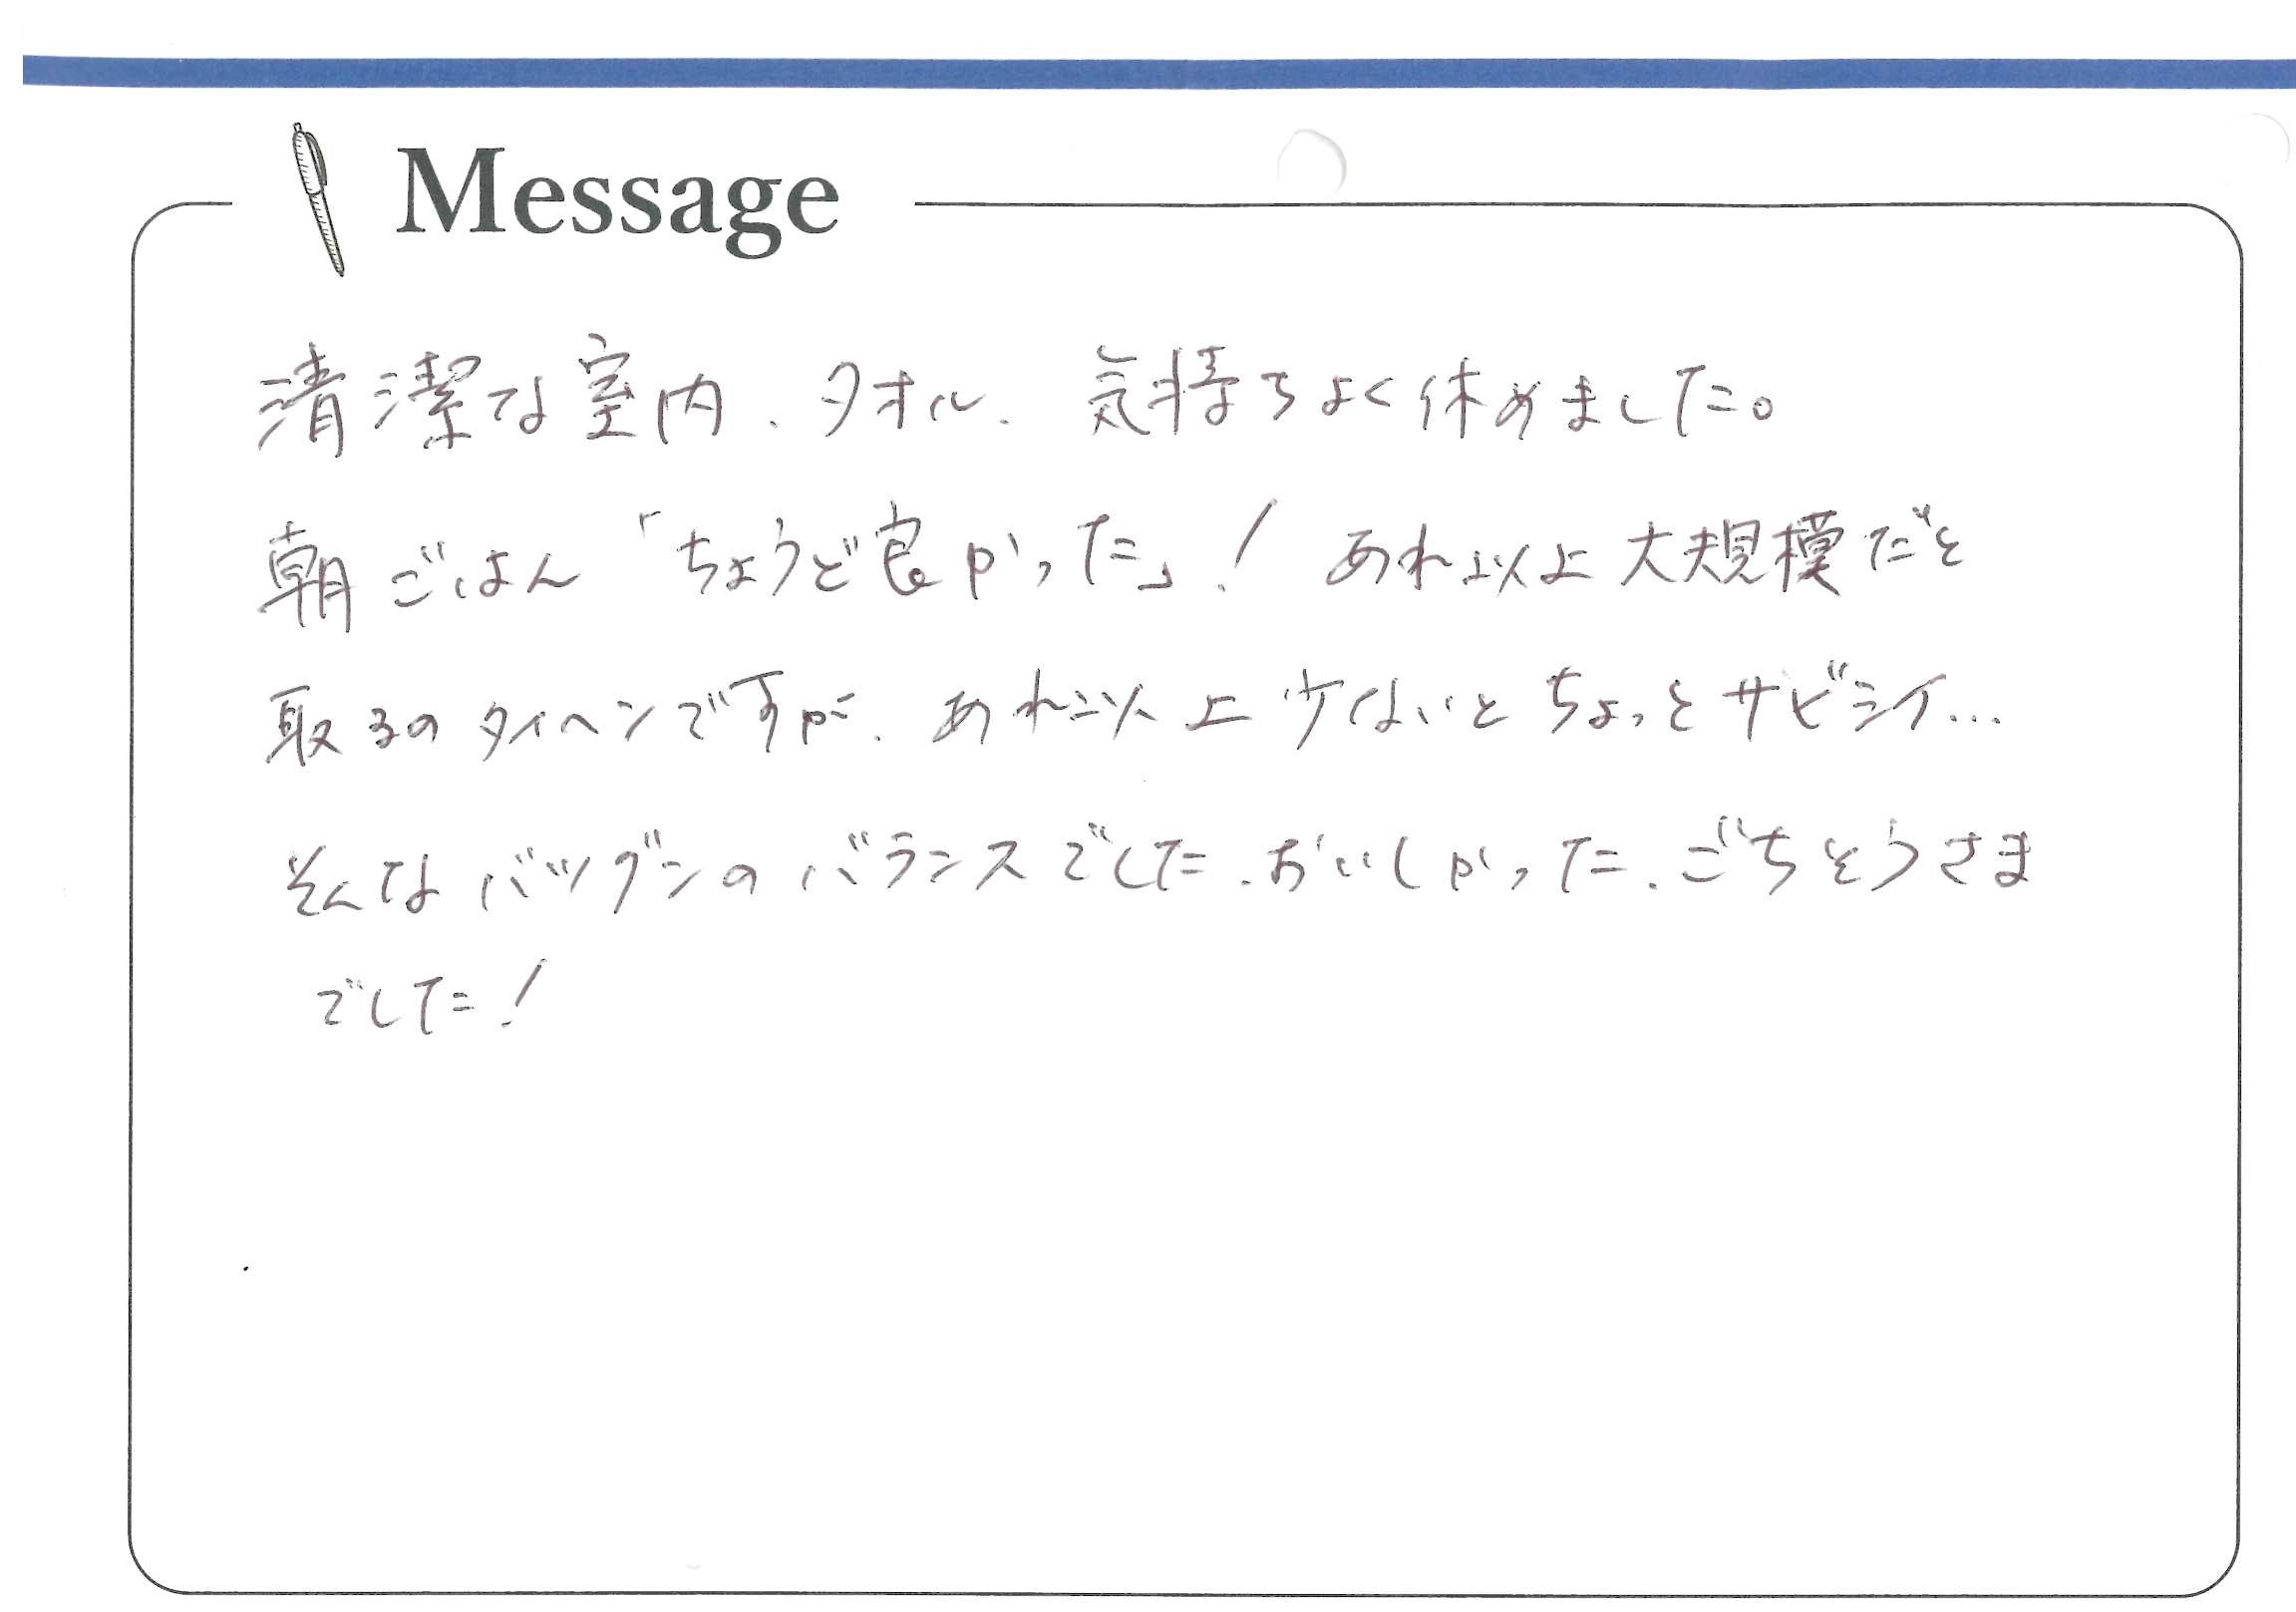 Message
清潔な室内、タオル、気持ちよく休めました。
朝ごはん「ちょうど良かった」! あれ以上大規模だと
取るのタイヘンですが、あれ以上少ないとちょっとサビシイ…
そんなバツグンのバランスでした、おいしかった、ごちそうさま
でした!